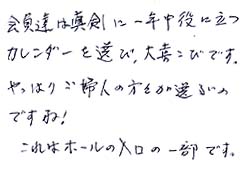 会員達は真剣に一年中役に立つ
カレンダーを選び、大喜こびです。
やっぱりご婦人の方々が選ぶの
ですね!
これはホールの入口の一部です。